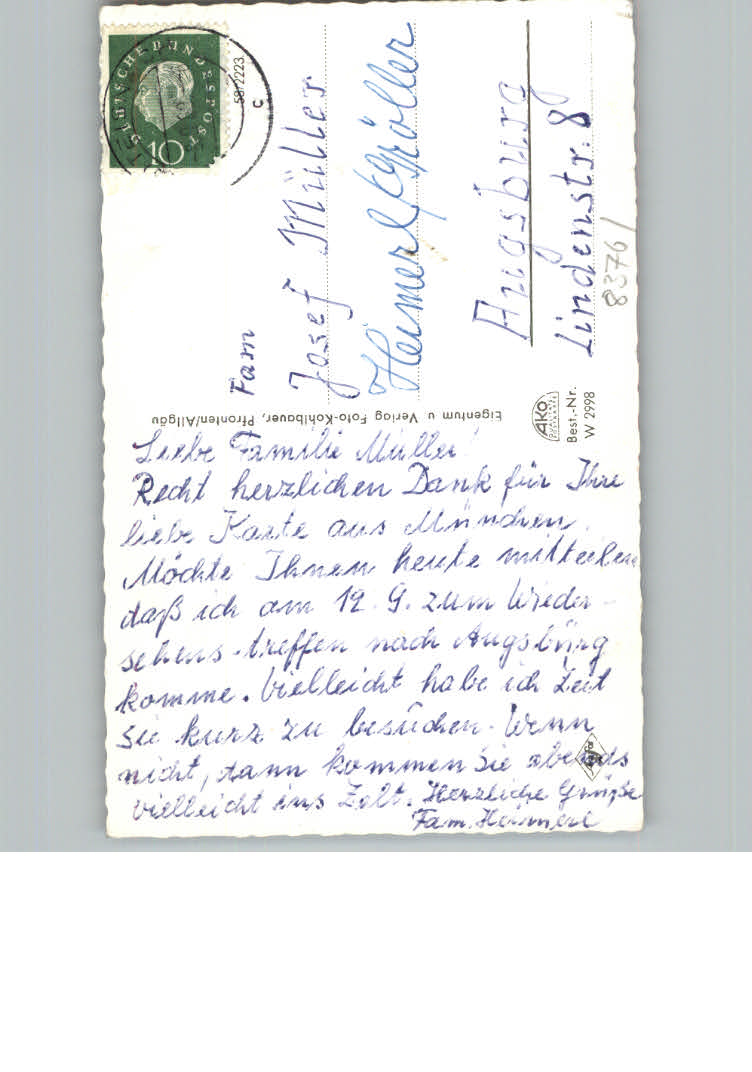 DEUTSCHE BUNDESPOST
10
c
Fam
Josef Müller
Augsburg
Lindenstr. 8
8376/
Eigentum u Verlag Foto-Kohlbauer, Pfronten/Allgäu
AKO
Best.-Nr.
W 2998
Liebe Familie Müller!
Recht herzlichen Dank für Ihre
liebe Karte aus München.
Möchte Ihnen heute mitteilen
daß ich am 12. 9. zum Wieder-
sehens-treffen nach Augsburg
komme. Vielleicht habe ich Zeit
Sie kurz zu besuchen. Wenn
nicht, dann kommen Sie abends
vielleicht ins Zelt. Herzliche Grüße
Fam. Heimerl
Agfa